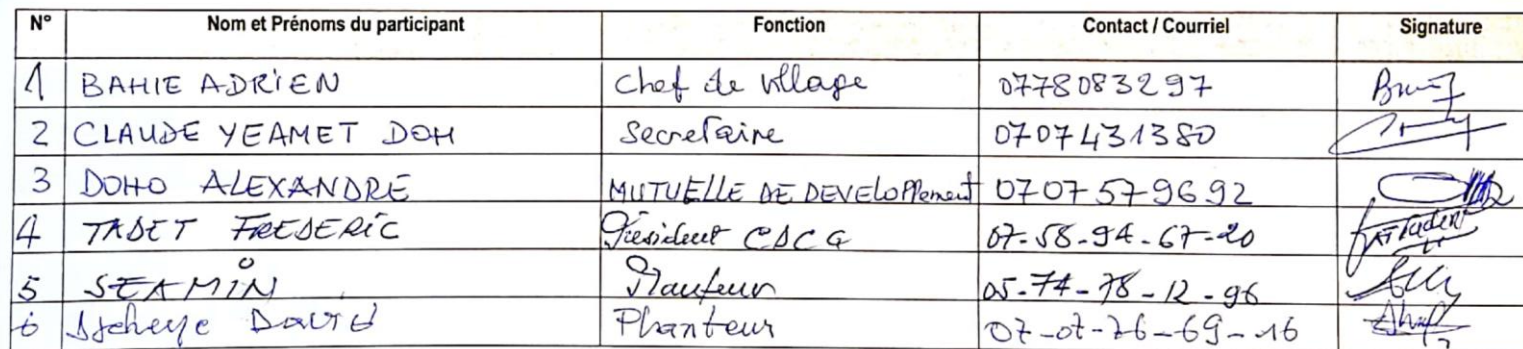 N° Nom et Prénoms du participant Fonction Contact / Courriel Signature
1 BAHIE ADRIEN Chef de village 0778083297
2 CLAUDE YEAMET DOH Secretaire 0707431380
3 DOHO ALEXANDRE MUTUELLE DE DEVELOPPement 0707579692
4 TADET FREDERIC Président CDCG 07-58-94-67-20
5 SEAMIN Planteur 05-74-78-12-96
6 David Phanteur 07-07-76-69-16